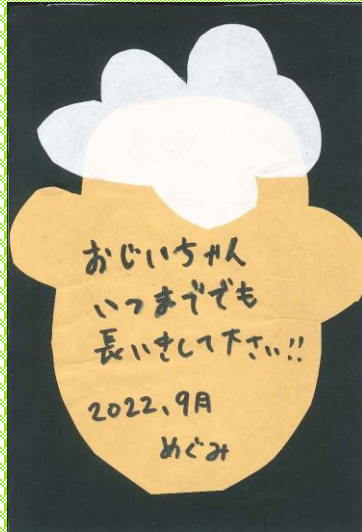 おじいちゃん
いつまででも
長いきして下さい!!
2022、9月
めぐみ